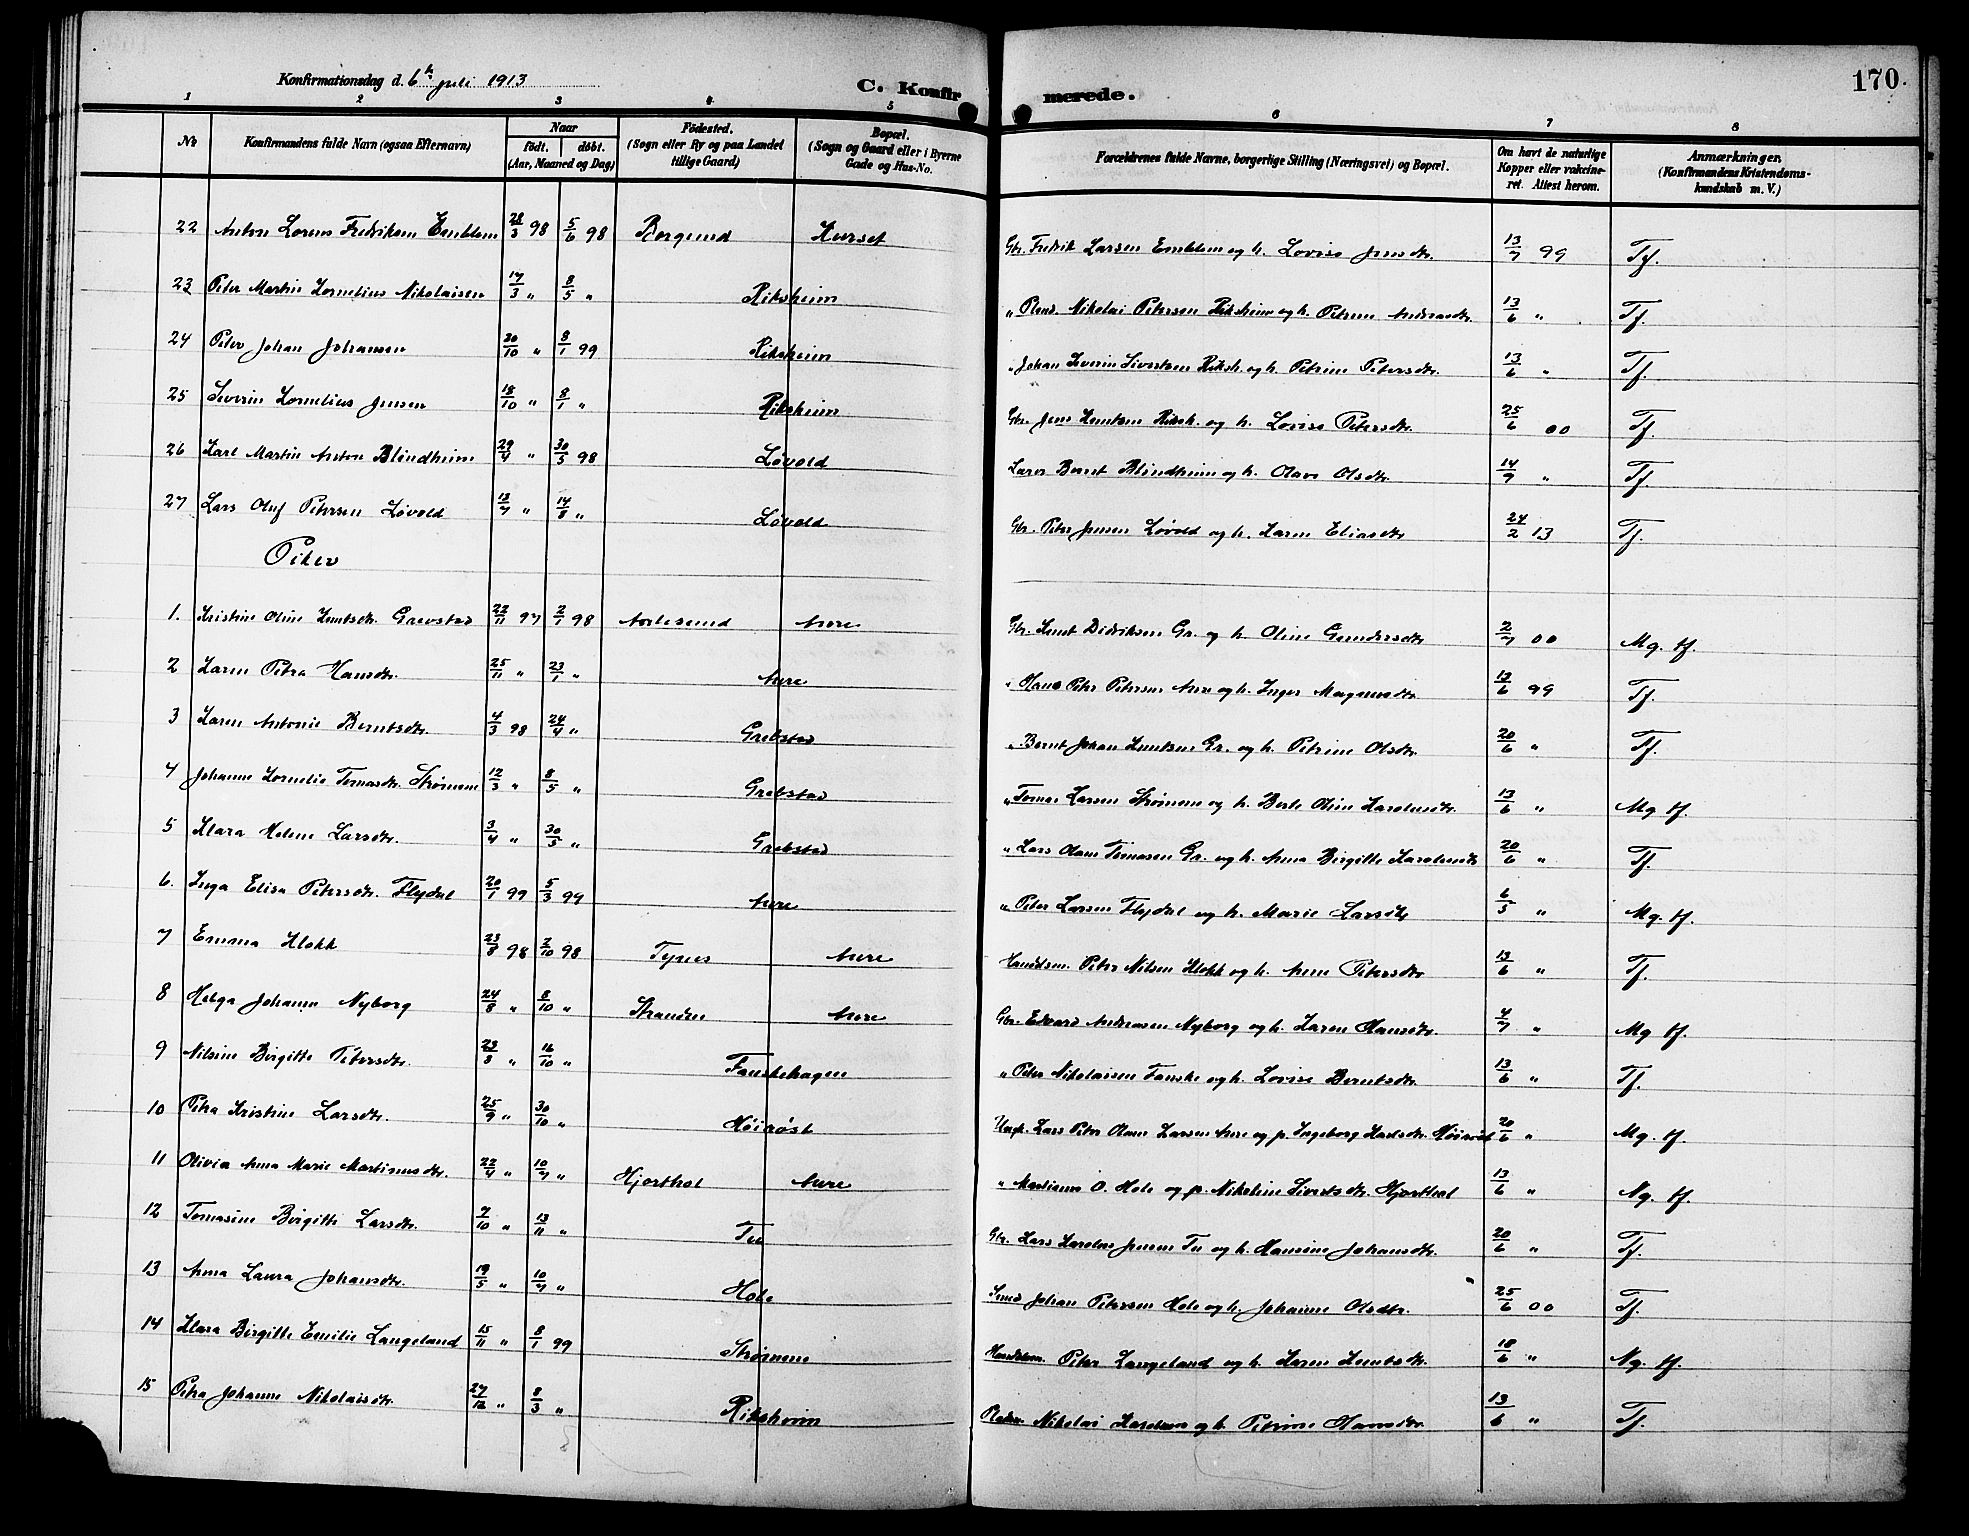 Konfirmationsdag d. 6te juli 1913
C. Konfirmerede.
170.
1 2 3 4 5 6 7 8
No
Konfirmandens fulde Navn (ogsaa Efternavn)
Naar
Født. døbt.
(Aar, Maaned og Dag)
Fødested.
(Sogn eller By og paa Landet
tillige Gaard)
Bopæl.
(Sogn og Gaard eller i Byerne
Gade og Hus-No.
Forældrenes fulde Navne, borgerlige Stilling (Næringsvei) og Bopæl.
Om havt de naturlige
Kopper eller vakcine-
ret. Attest herom.
Anmærkninger,
(Konfirmandens Kristendoms-
kundskab m. V.)
22 Anton Lorens Fredriksen Emblem 28/3 98 5/6 98 Borgund Aurset Gbr. Fredrik Larsen Emblem og h. Lovise Jensdtr. 13/7 99 Tf.
23 Peter Martin Kornelius Nikolaisen 17/3 " 8/5 " Riksheim " Nikolai Petersen Riksheim og h. Petrine 13/6 " Tf.
24 Peter Johan Johansen 20/10 " 8/1 99 Riksheim " Johan Severin Sivertsen Riksh. og h. Petrine Petersdtr. 13/6 " Tf.
25 Severin Kornelius Jensen 18/10 " 8/1 " Riksheim Gbr. Jens Knutsen Riksh. og h. Lovise Petersdtr. 25/6 00 Tf.
26 Karl Martin Anton Blindheim 29/4 " 30/5 98 Løvold Bernt Blindheim og h. Olave Olsdtr. 14/9 " Tf.
27 Lars Oluf Petersen Løvold 13/7 " 14/8 " Løvold Gbr. Peter Jensen Løvold og h. Karen Eliasdtr 24/2 13 Tf.
Piker
1. Kristine Oline Knutsdtr. Grevstad 22/11 97 2/1 98 Aalesund Aure Gbr. Knut Didriksen Gr. og h. Oline Gundersdtr. 2/7 00 Mg. tf.
2 Karen Petra Hansdtr. 25/11 " 23/1 " Aure " Hans Peter Petersen Aure og h. Inger Magnusdtr. 13/6 99 Tf.
3 Karen Antonie Berntsdtr. 4/3 98 24/4 " Grebstad " Bernt Johan Knutsen Gr. og h. Petrine Olsdtr. 20/6 " Tf.
4 Johanne Kornelie Tomasdtr. Strømme 12/3 " 8/5 " Grebstad " Tomas Larsen Strømme og h. Berte Oline Karolusdtr. 13/6 " Mg tf.
5 Klara Helene Larsdtr. 3/4 " 30/5 " Grebstad " Lars Olaus Tomasen Gr. og h. Anna Birgitte Karolusdtr 20/6 " Tf.
6. Inga Elisa Petersdtr. Flydal 20/1 99 5/3 99 Aure " Peter Larsen Flydal og h. Marie Larsdtr 6/5 " Mg. tf.
7 Emma Klokk 23/8 98 2/10 98 Tynes Aure Handlsm. Peter Nilsen Klokk og h. Anne Petersdtr 13/6 " Tf.
8 Helga Johanne Nyborg 24/8 " 8/10 " Stranden Aure Gbr. Edvard Andreasen Nyborg og h. Karen Hansdtr. 4/7 " Mg tf.
9 Nilsine Birgitte Petersdtr. 23/8 " 16/10 " Fauskehagen " Peter Nikolaisen Fauske og h. Lovise Berntsdtr. 13/6 " Tf.
10 Petra Kristine Larsdtr. 25/9 " 30/10 " Høirøst Ungk. Lars Peter Olaus Larsen Aure og p. Ingeborg Høirøst 20/6 " Mg. tf.
11 Olivia Anna Marie Martinusdtr. 22/4 " 10/7 " Hjorthol Aure " Martinus O. Hole og p. Nikoline Sivertsdtr. Hjorthol 13/6 " Ng. tf.
12 Tomasine Birgitte Larsdtr. 7/10 " 13/11 " Tu Gbr. Lars Karolus Jensen Tu og h. Hansine Johansdtr. 20/6 " Tf.
13 Anna Laura Johansdtr. 19/5 " 10/7 " Hole Smed Johan Petersen Hole og h. Johanne Olsdtr. 25/6 00 Tf.
14 Klara Birgitte Emilie Langeland 15/11 " 8/1 99 Strømme Handelsm. Peter Langeland og h. Karen Knutsdtr. 18/6 " Ng. tf.
15 Petra Johanne Nikolaisdtr. 27/12 " 8/3 " Riksheim Nikolai Karolusen og h. Petrine Hansdtr. 13/6 " Tf.